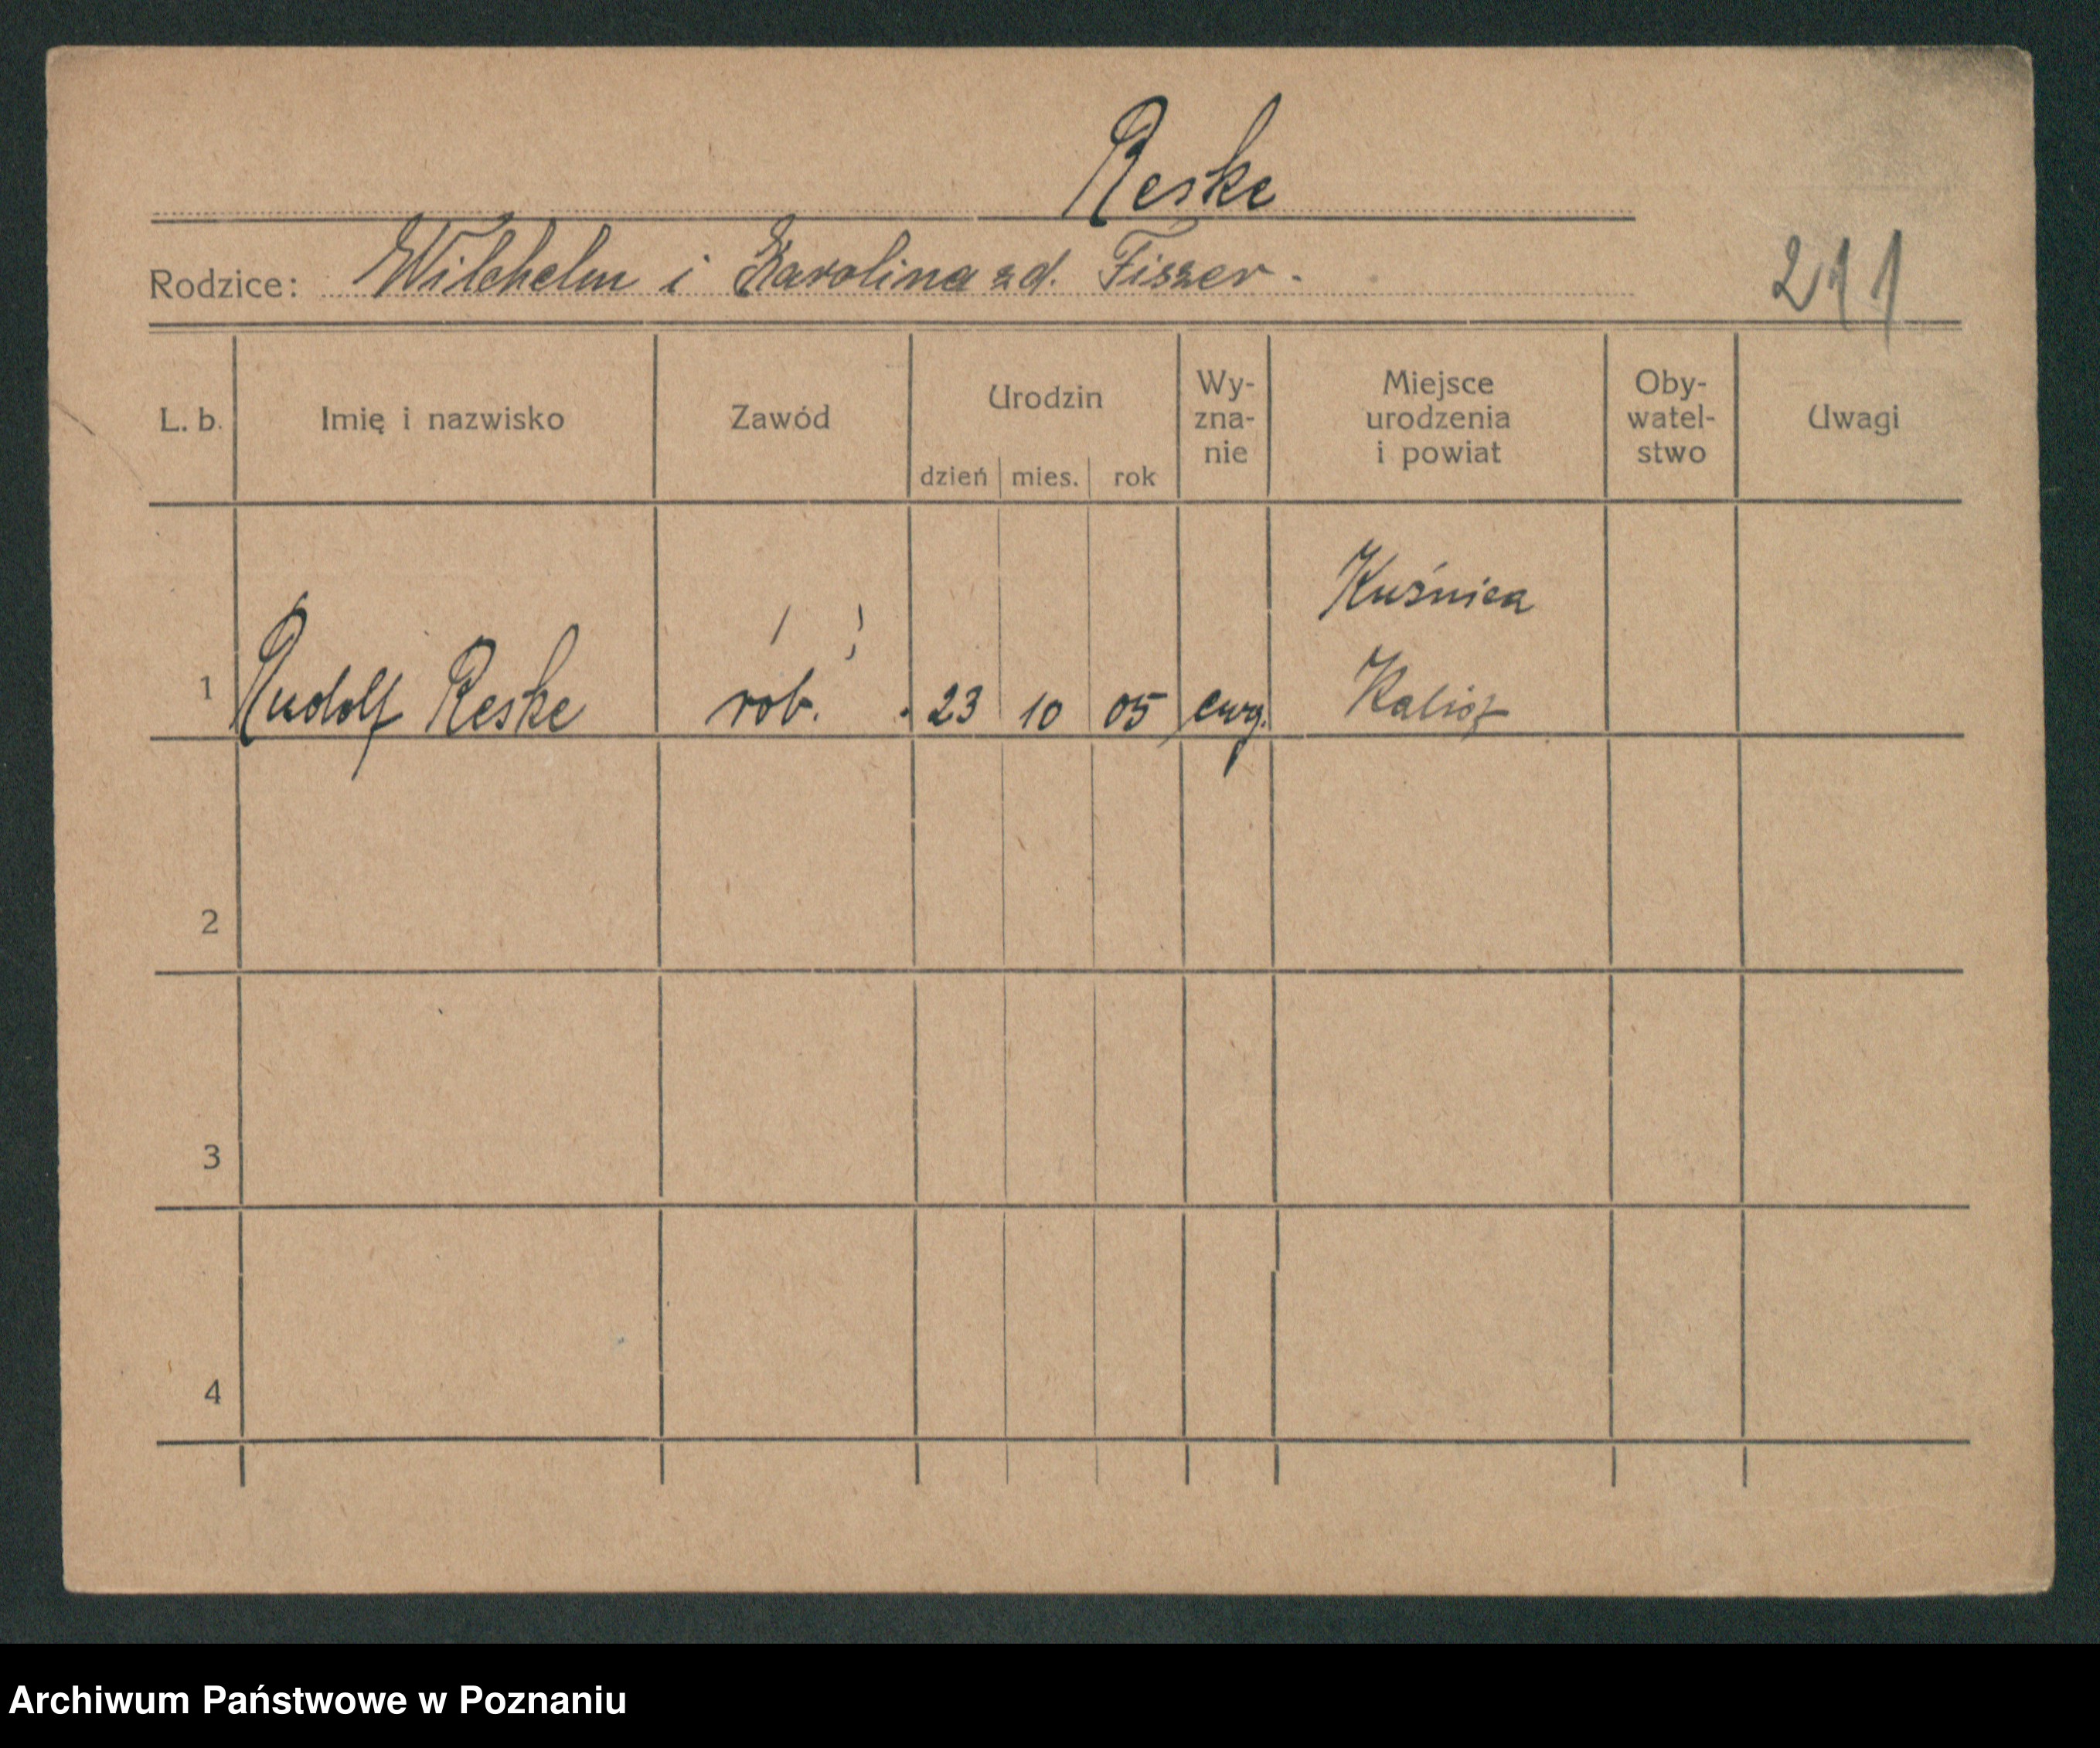 Reske
Rodzice: Wilchelm i Karolina zd. Fiszer.
211
L. b. Imię i nazwisko Zawód Urodzin dzień mies. rok Wy-zna-nie Miejsce urodzenia i powiat Oby-watel-stwo Uwagi
Kuśnica
1 Rudolf Reske rob. 23 10 05 ewg. Kalisz
2
3
4
Archiwum Państwowe w Poznaniu